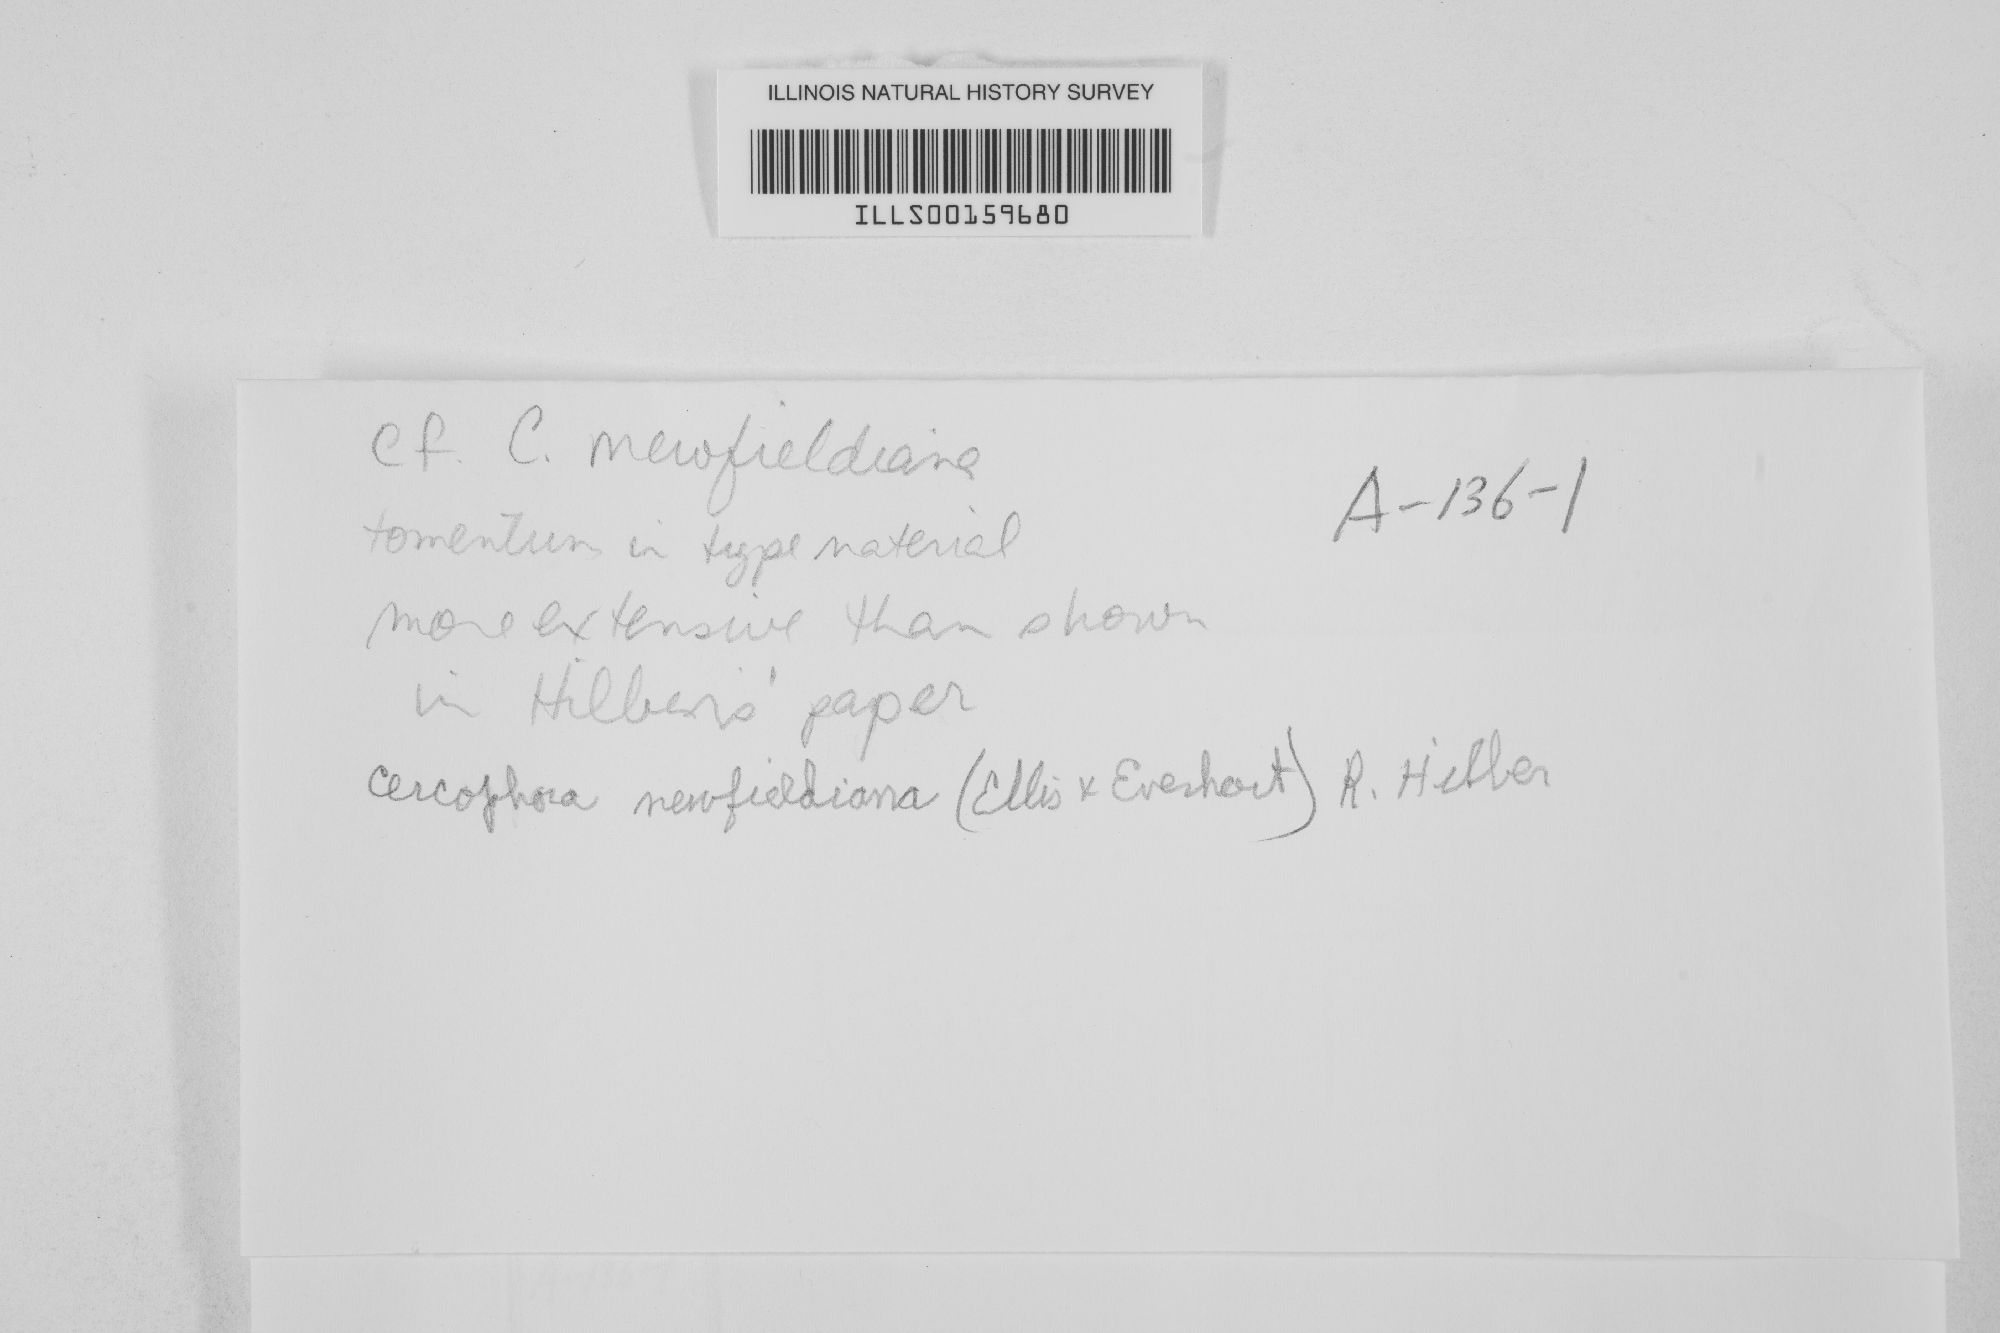 ILLINOIS NATURAL HISTORY SURVEY
ILLS00159680
cf. C. newfieldiana
A-136-1
tomentum in type material
more extensive than shown
in Hilber's' paper
Cercophora newfieldiana (Ellis & Everhart) R. Hilber